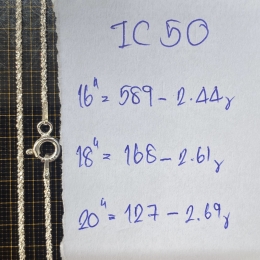 IC 50
16" = 589 - 2.44g
18" = 168 - 2.61g
20" = 127 - 2.69g